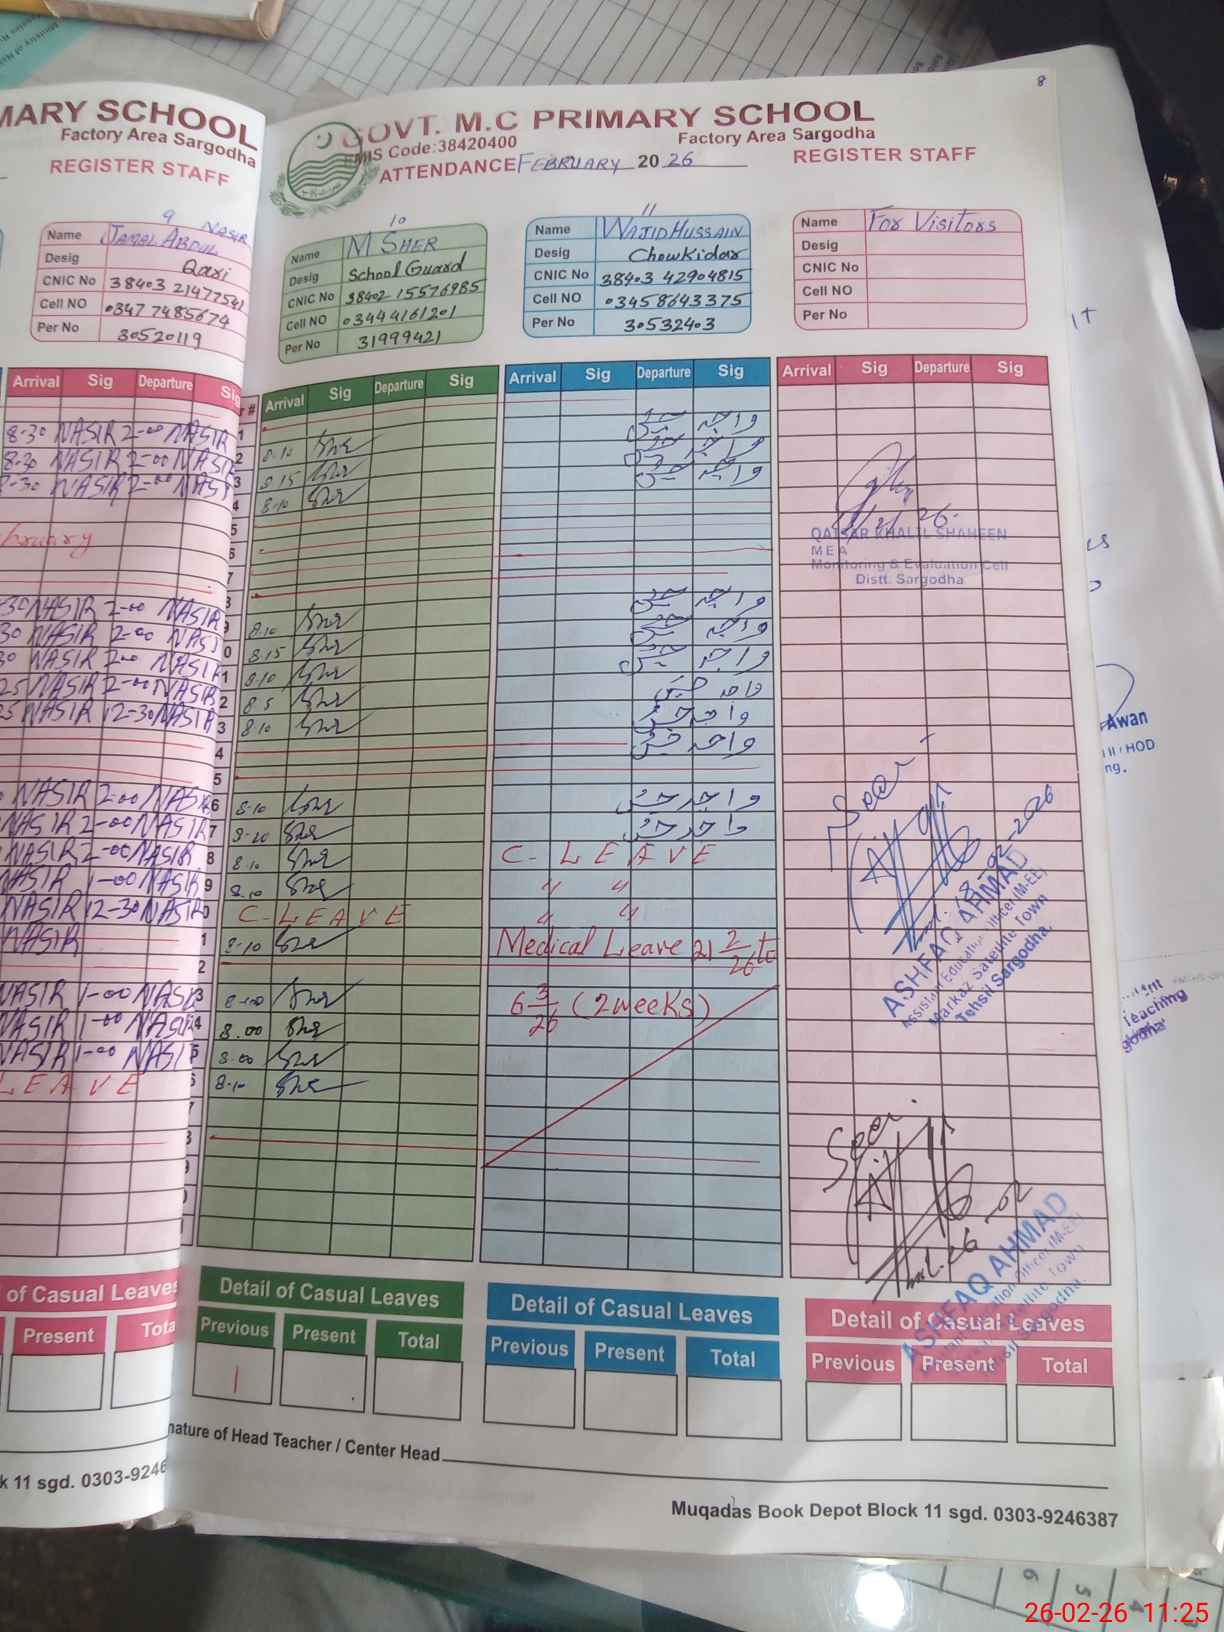 MARY SCHOOL
Factory Area Sargodha
REGISTER STAFF
9
Name JAMAL ABDUL NASIR
Desig Qari
CNIC No 38403 21477541
Cell NO 03477485674
Per No 30520119
Arrival Sig Departure Sig
8-30 NASIR 2-00 NASIR
8-30 NASIR 2-00 NASIR
NASIR 2-00 NASI
NASIR 2-00 NASIR
30 NASIR 2-00 NASI
30 NASIR 2-00 NASIR
25 NASIR 2-00 NASIR
NASIR 12-30 NASIR
NASIR 2-00 NASIR
NASIR 2-00 NASIR
NASIR 2-00 NASIR
NASIR 1-00 NASIR
NASIR 12-30 NASIR
NASIR
NASIR 1-00 NASIR
NASIR 1-00 NASIR
NASIR 1-00 NASIR
LEAVE
of Casual Leaves
Present Tota
k 11 sgd. 0303-9246
8
GOVT. M.C PRIMARY SCHOOL
Factory Area Sargodha
EMIS Code:38420400
ATTENDANCE FEBRUARY 20 26
REGISTER STAFF
10
Name M SHER
Desig School Guard
CNIC No 38402 15576985
Cell NO 03444161201
Per No 31999421
11
Name WAJID HUSSAIN
Desig Chowkidar
CNIC No 38403 42904815
Cell NO 03458643375
Per No 30532403
Name For Visitors
Desig
CNIC No
Cell NO
Per No
Arrival Sig Departure Sig
8-10 Sher
8-15 Sher
8-10 Sher
8-10 Sher
8-15 Sher
8-10 Sher
8-5 Sher
8-10 Sher
8-10 Sher
8-20 Sher
8-10 Sher
8-10 Sher
C-LEAVE
8-10 Sher
8-00 Sher
8-00 Sher
8-00 Sher
8-10 Sher
Arrival Sig Departure Sig
واجد حسین
واجد حسین
واجد حسین
واجد حسین
واجد حسین
واجد حسین
واجد حسین
واجد حسین
واجد حسین
واجد حسین
واجد حسین
C-LEAVE
〃 〃
〃 〃
Medical Leave 21 2/26 to
6 3/26 (2 weeks)
Arrival Sig Departure Sig
QAISAR KHALIL SHAHEEN
MEA
Monitoring & Evaluation Cell
Distt. Sargodha
Seen
18-02-2026
ASHFAQ AHMAD
Assistant Education Officer (M-EE)
Markaz Satellite Town
Tehsil Sargodha.
Seen
ASHFAQ AHMAD
Detail of Casual Leaves
Previous Present Total
1
Detail of Casual Leaves
Previous Present Total
Detail of Casual Leaves
Previous Present Total
nature of Head Teacher / Center Head
Muqadas Book Depot Block 11 sgd. 0303-9246387
Awan
HOD
Teaching
26-02-26 11:25